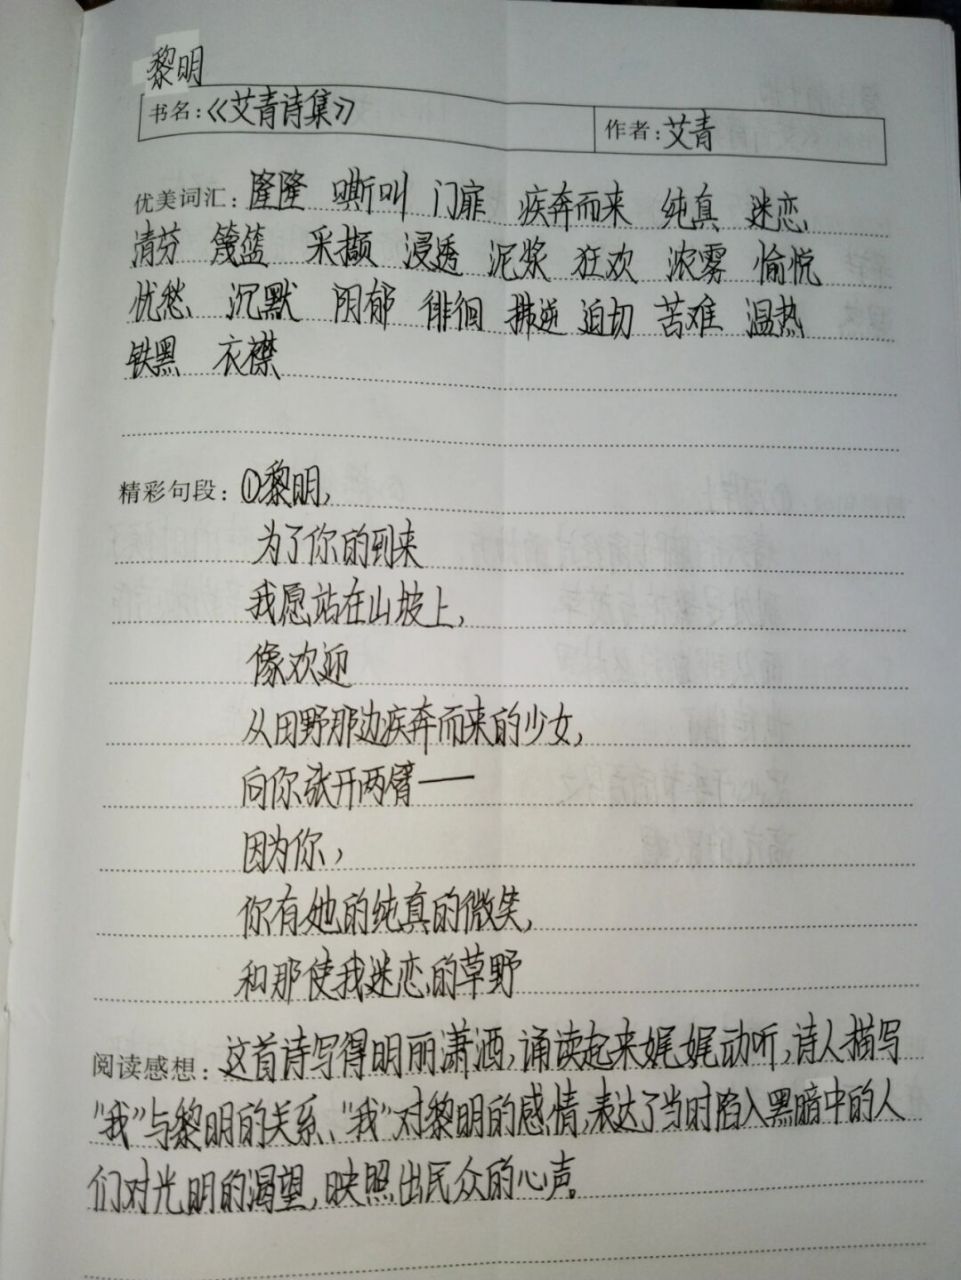 黎明
书名:《艾青诗集》 作者:艾青
优美词汇:隆隆 嘶叫 门扉 疾奔而来 纯真 迷恋
清芬 篾篮 采撷 浸透 泥浆 狂欢 浓雾 愉悦
忧愁 沉默 阴郁 徘徊 拂逆 迫切 苦难 温热
铁黑 衣襟
精彩句段:①黎明,
为了你的到来
我愿站在山坡上,
像欢迎
从田野那边疾奔而来的少女,
向你张开两臂——
因为你,
你有她的纯真的微笑,
和那使我迷恋的草野
阅读感想:这首诗写得明丽潇洒,诵读起来娓娓动听,诗人描写
“我”与黎明的关系、“我”对黎明的感情,表达了当时陷入黑暗中的人
们对光明的渴望,映照出民众的心声。